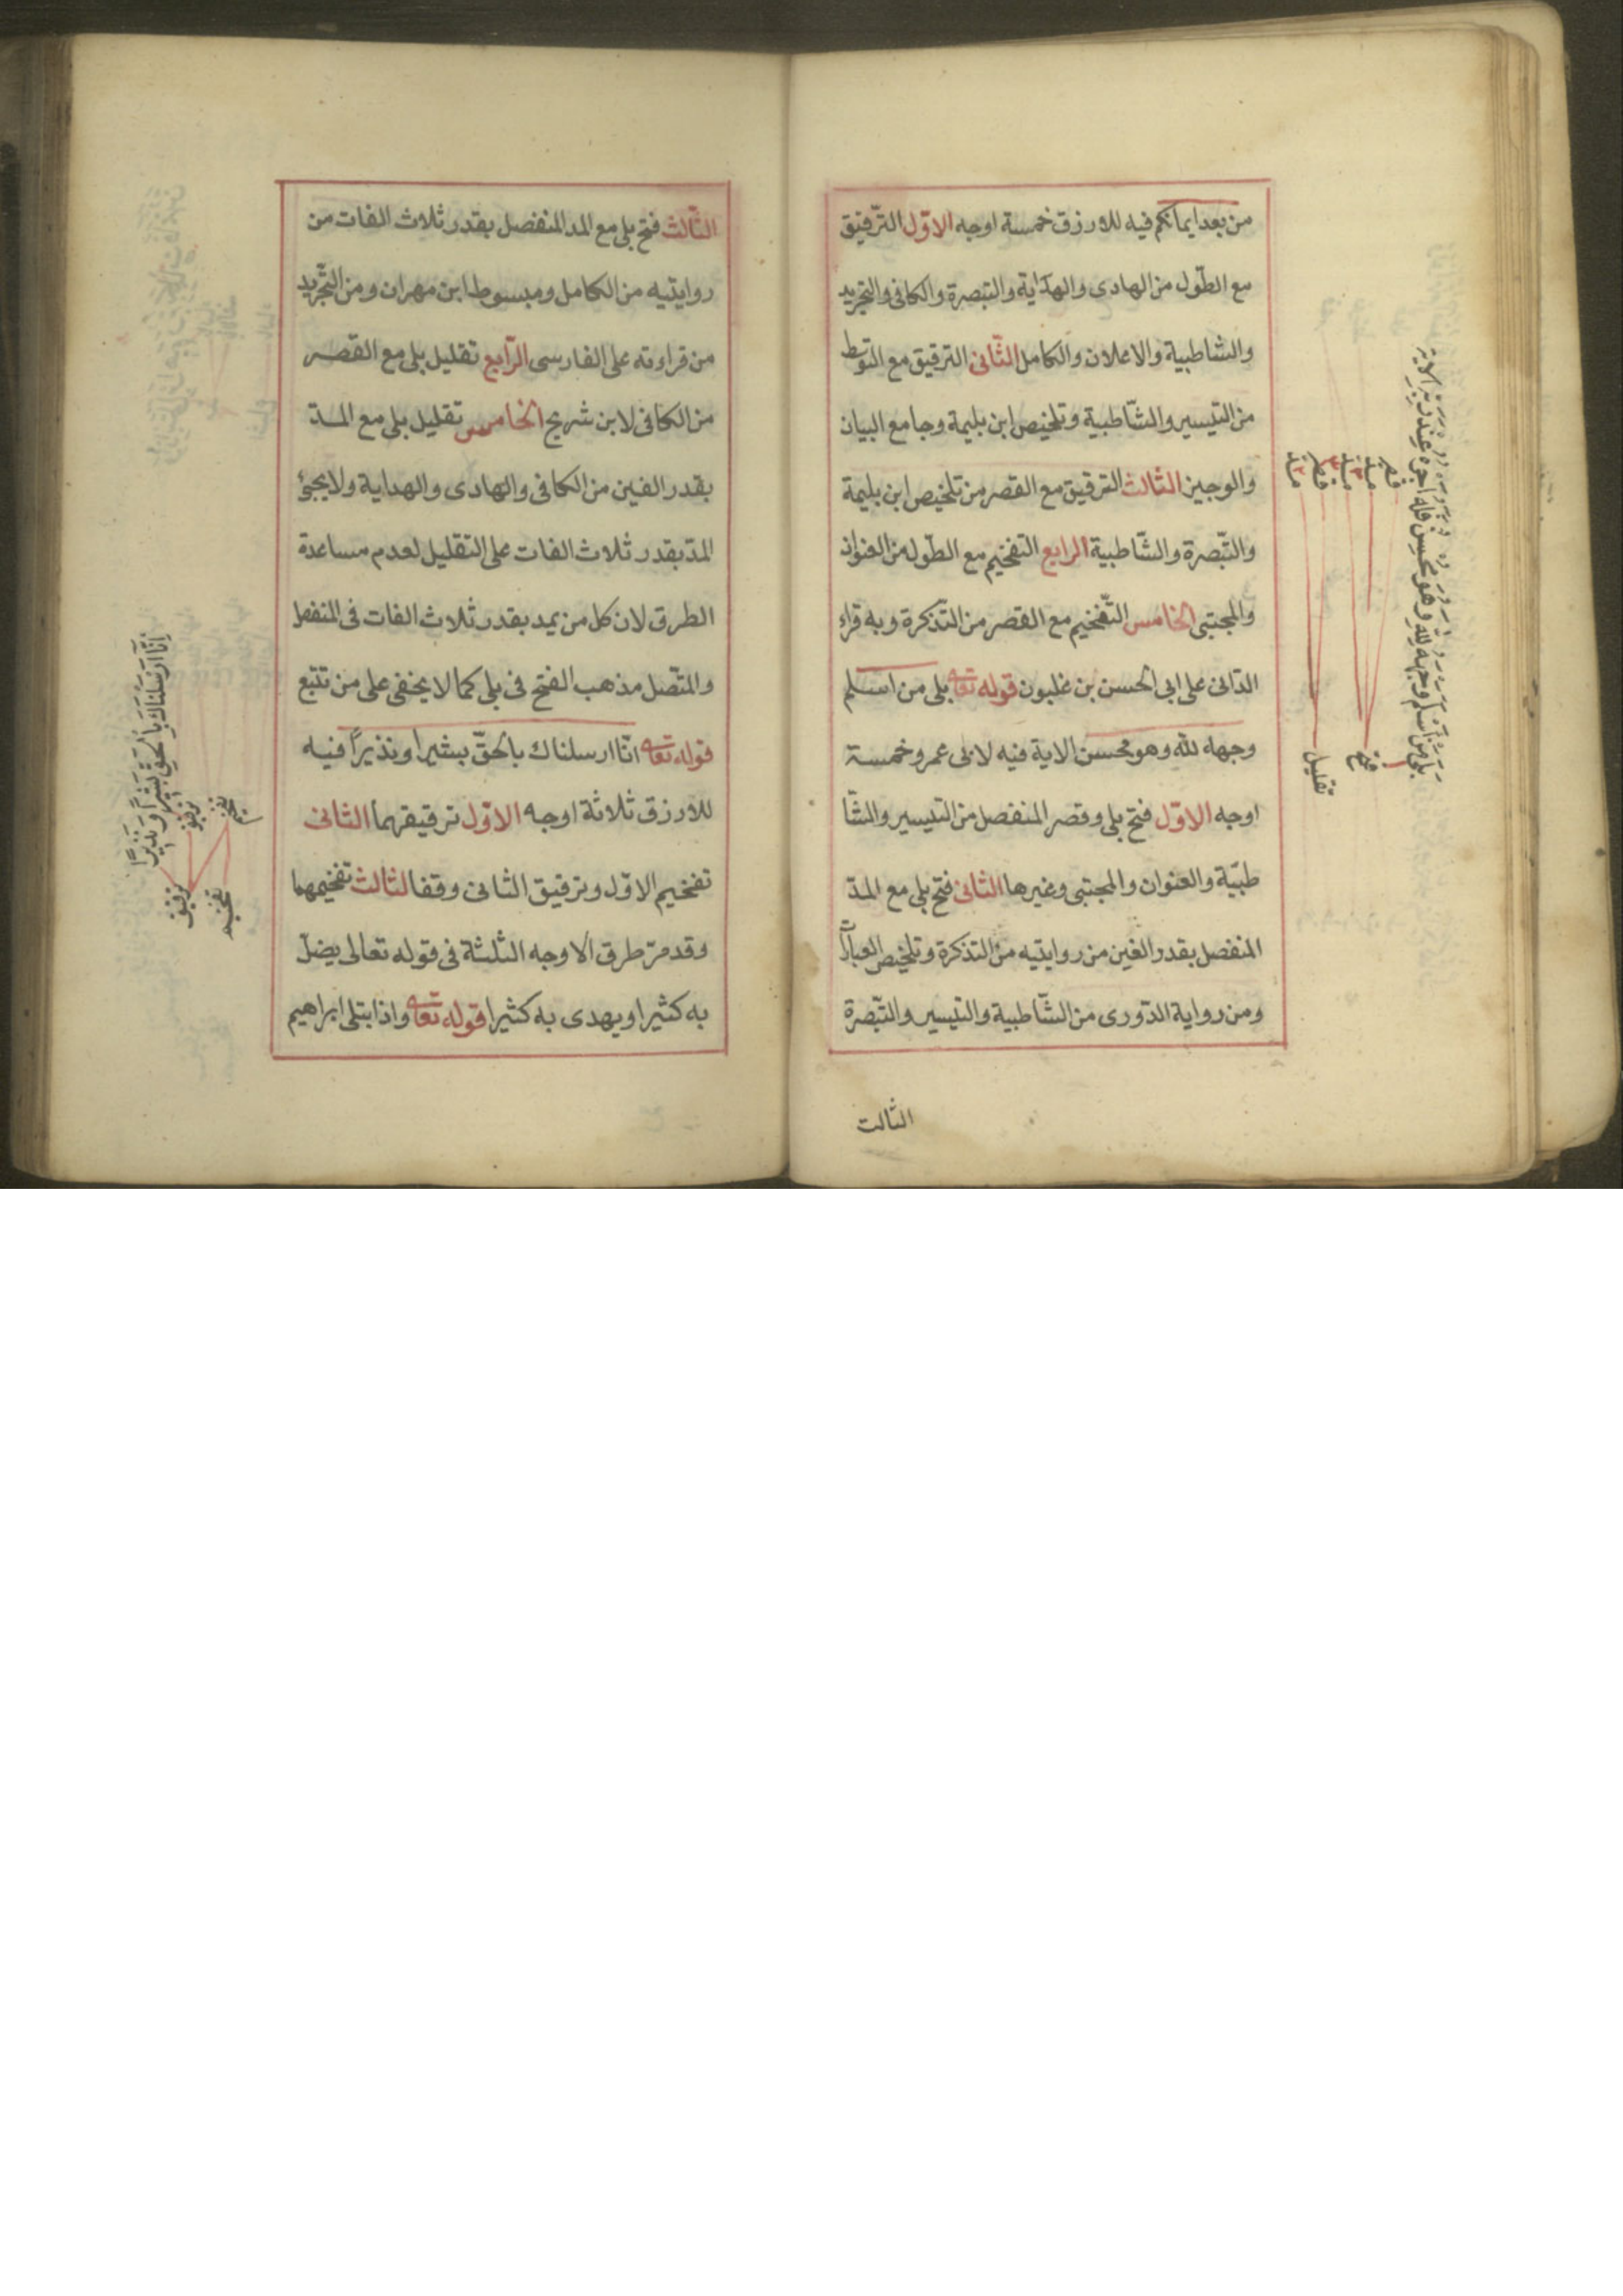 من بعد ايمانكم فيه للازرق خمسة اوجه الاوّل الترّقيق
مع الطّول من الهادى والهداية والتبصرة والكافى والتجريد
والشاطبية والاعلان والكامل الثّانى الترقيق مع التوسّط
من التيسير والشّاطبية وتلخيص ابن بليمة وجامع البيان
والوجيز الثالث الترقيق مع القصر من تلخيص ابن بليمة
والتّبصرة والشّاطبية الرابع التفخيم مع الطّول من العنوان
والمجتبى الخامس التّفخيم مع القصر من التّذكرة وبه قراء
الدّانى على ابى الحسن بن غلبون قوله تعا بلى من اسلم
وجهه لله وهو محسن الاية فيه لابى عمرو خمسة
اوجه الاوّل فتح بلى وقصر المنفصل من التيسير والشّا
طبيّة والعنوان والمجتبى وغيرها الثانى فتح بلى مع المدّ
المنفصل بقدر الفين من روايتيه من التذكرة وتلخيص العبارات
ومن رواية الدّورى من الشّاطبية والتيسير والتّبصرة
الثالث
بلى من اسلم وجهه لله وهو محسن فله اجره عند ربّه الاية
فتح
تقليل
الثّالث فتح بلى مع المد المنفصل بقدر ثلاث الفات من
روايتيه من الكامل ومبسوط ابن مهران ومن التّجريد
من قراءته على الفارسى الرّابع تقليل بلى مع القصر
من الكافى لابن شريح الخامس تقليل بلى مع المدّ
بقدر الفين من الكافى والهادى والهداية ولا يجئ
المدّ بقدر ثلاث الفات على التقليل لعدم مساعدة
الطرق لان كل من يمد بقدر ثلاث الفات فى المنفصل
والمتّصل مذهب الفتح فى بلى كما لا يخفى على من تتبع
قوله تعا انّا ارسلناك بالحقّ بشيرا ونذيرًا فيه
للازرق ثلاثة اوجه الاوّل ترقيقهما الثانى
تفخيم الاوّل وترقيق الثانى وقفا الثالث تفخيمهما
وقد مرّ طرق الاوجه الثلثة فى قوله تعالى يضلّ
به كثيرا ويهدى به كثيرا قوله تعا واذ ابتلى ابراهيم
اِنَّا اَرْسَلْنَاكَ بِالْحَقِّ بَشِيرًا وَنَذِيرًا
ترقيق
تفخيم
ترقيق
تفخيم